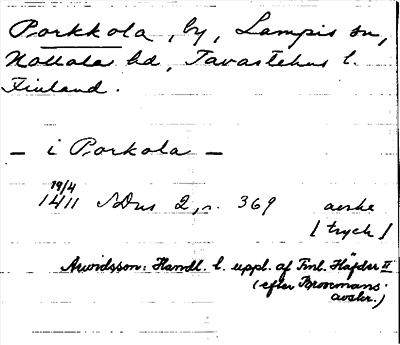 Porkkola, by, Lampis sn,
Hollola hd, Tavastehus l.
Finland.
– i Porkola –
19/4
1411 SDns 2, s. 369 avskr
[tryck]
Arwidsson: Handl. t. uppl. af Finl. Häfder II
(efter Broomans
avskr.)